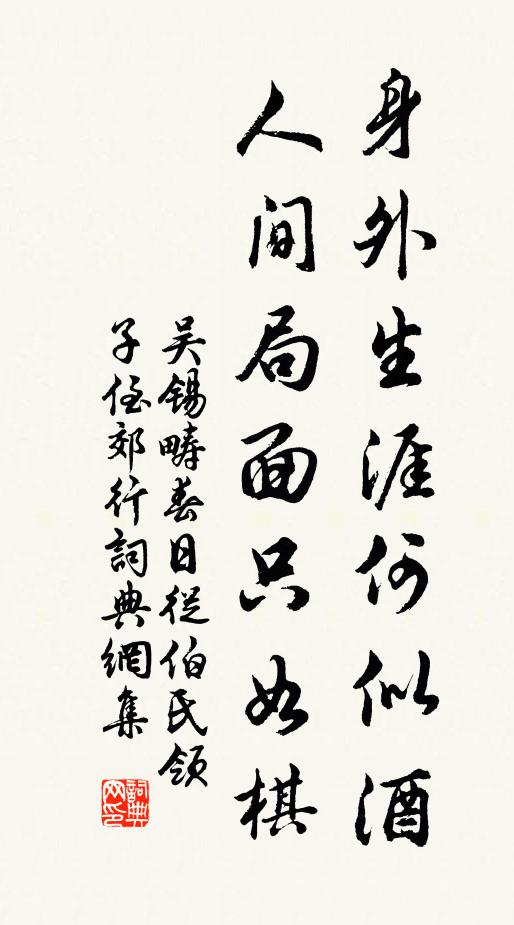 身外生涯何似酒
人间局面只如棋
吴锡畴春日從伯氏領
子侄郊行詞典網集
詞典
网印